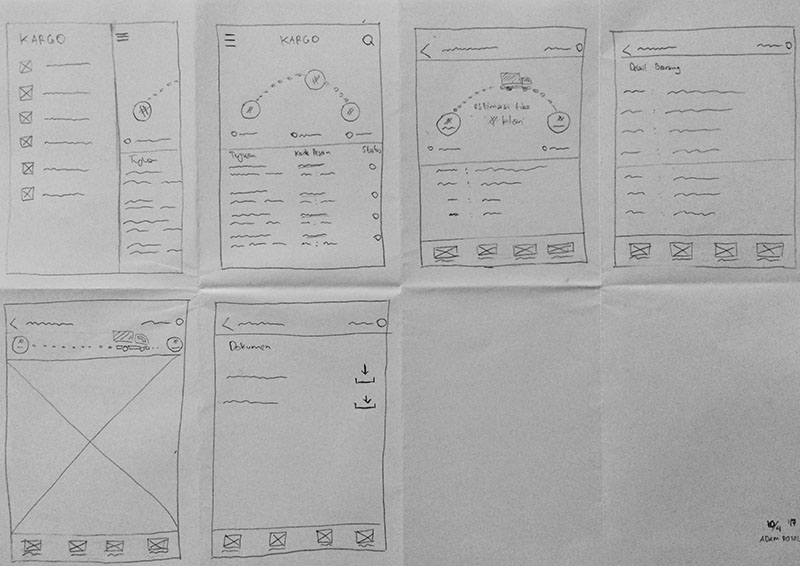 KARGO
KARGO
Tujuan
Tujuan
Kode Pesan
Status
estimasi tiba
# bulan
Detail Barang
Dokumen
10/4 '17
ADAM